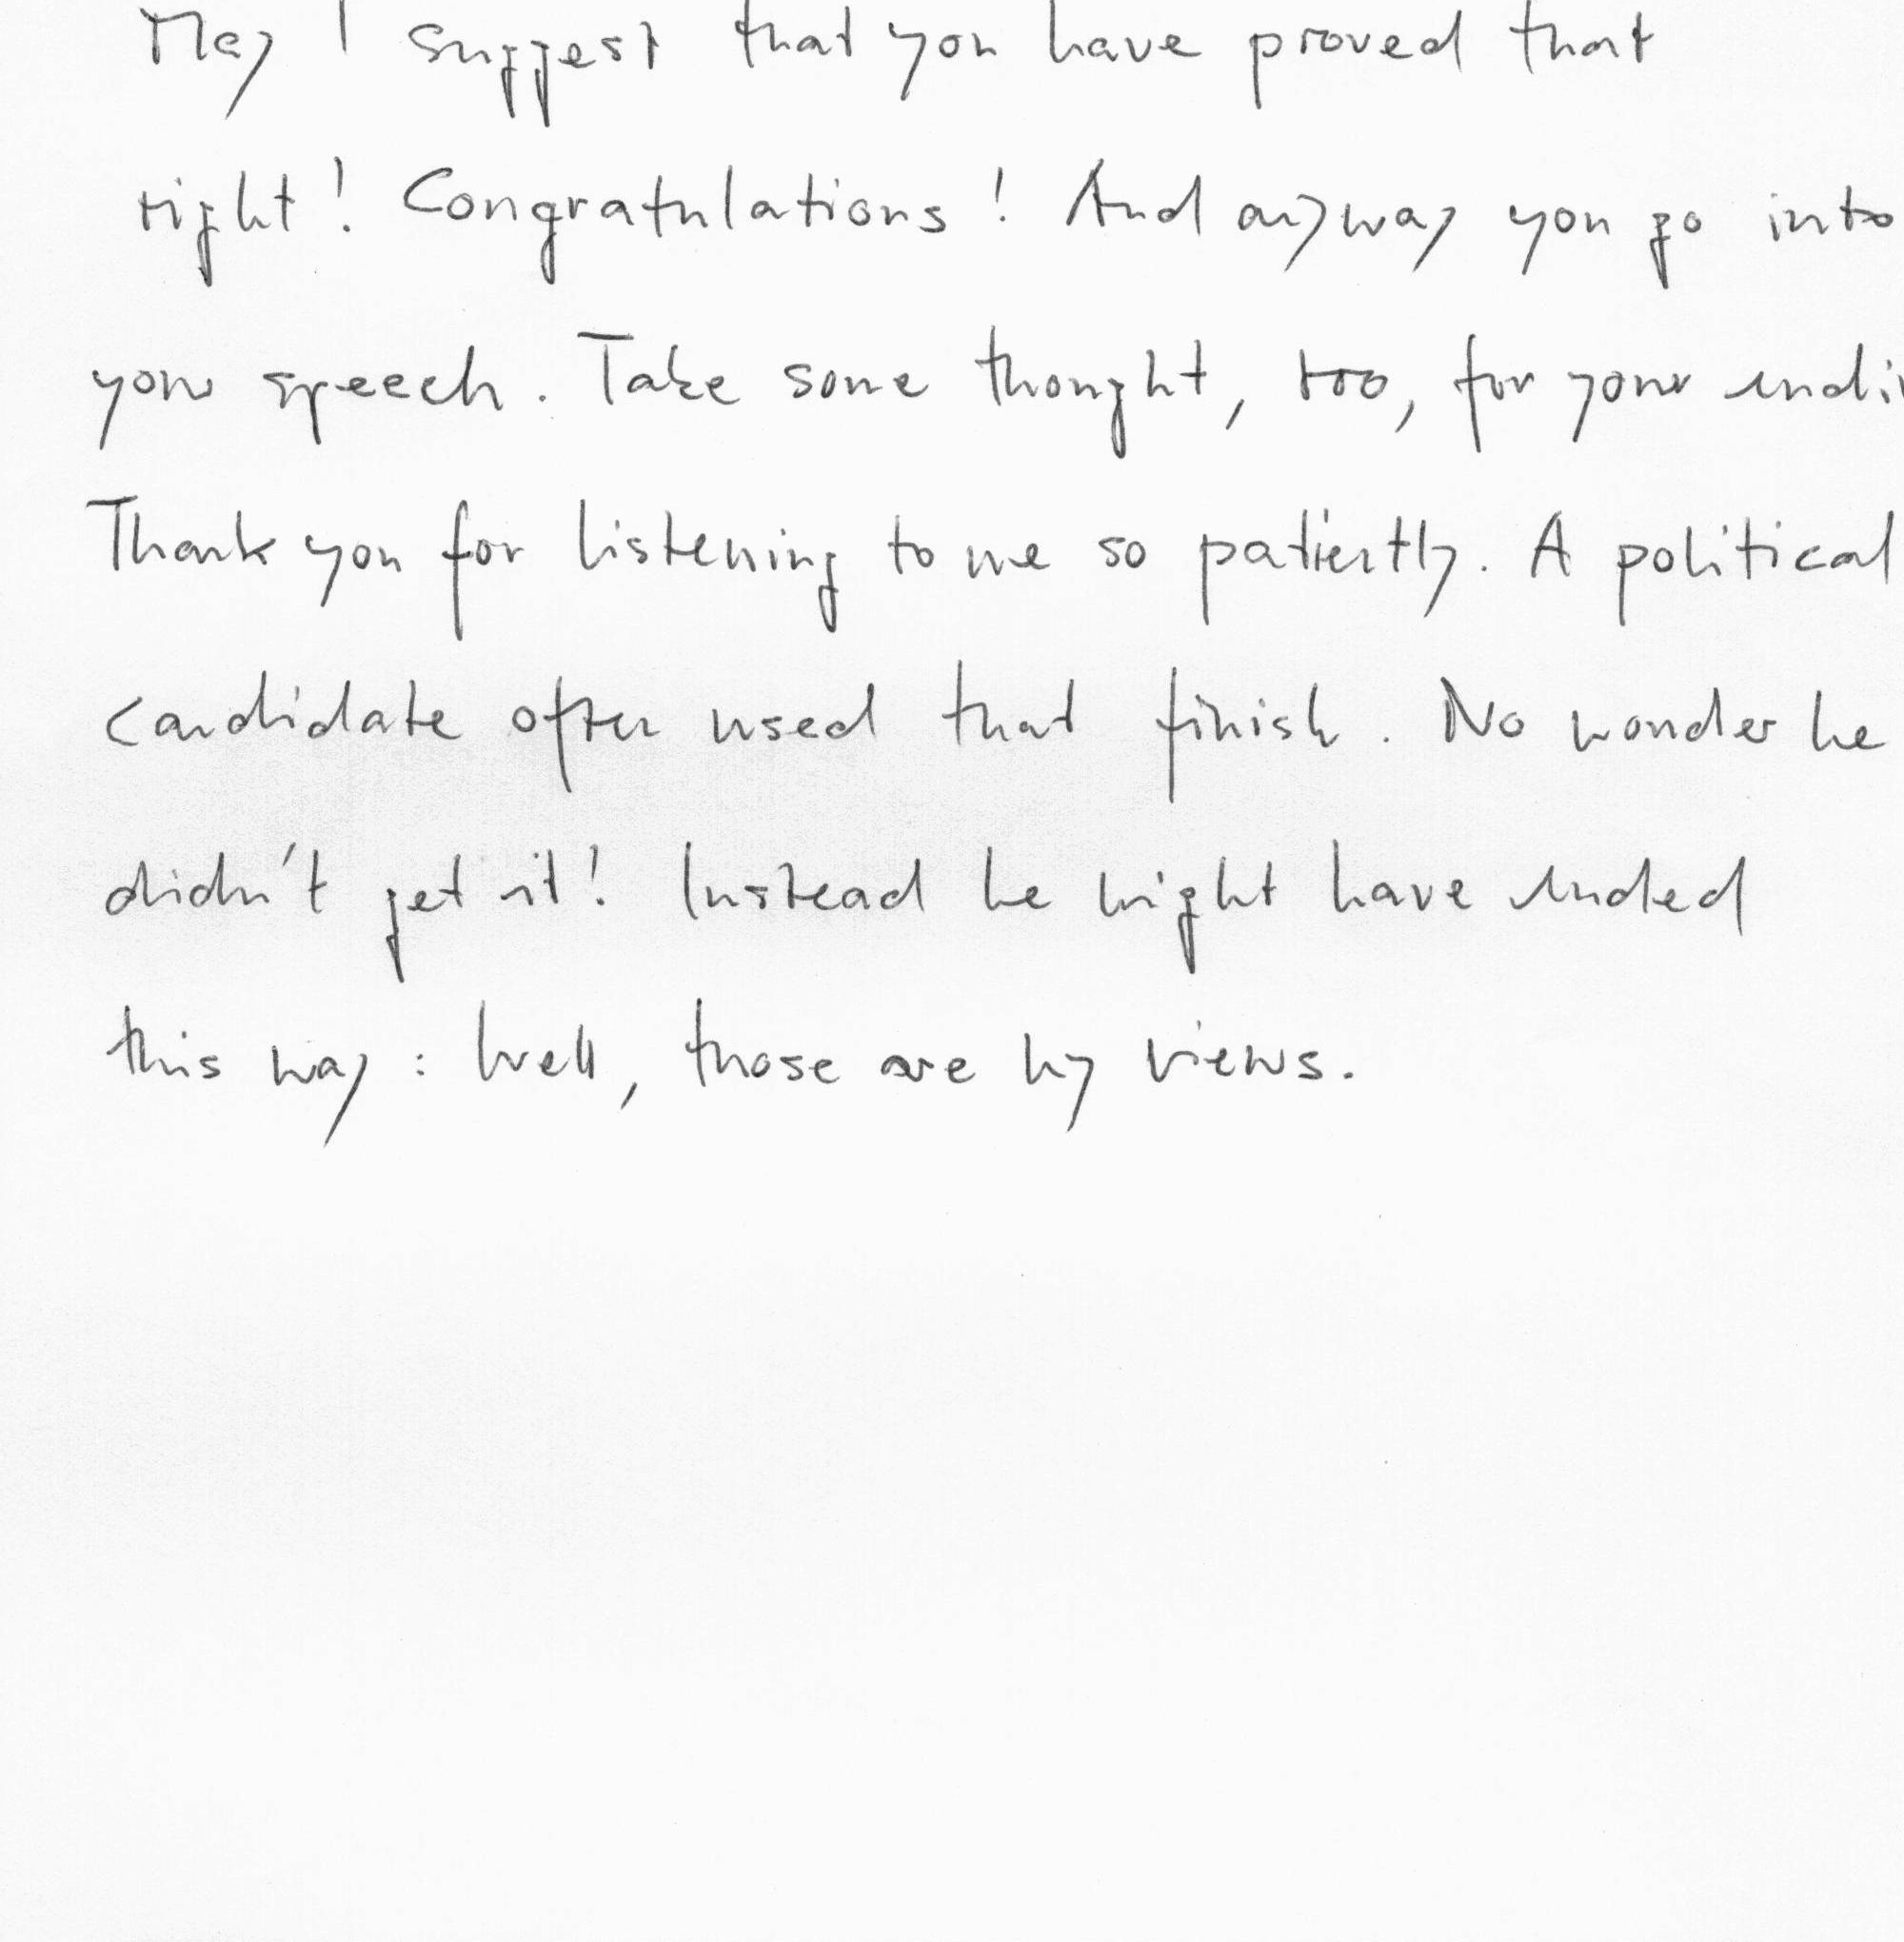 May I suggest that you have proved that
right! Congratulations! And anyway you go into
your speech. Take some thought, too, for your endi
Thank you for listening to me so patiently. A political
candidate often used that finish. No wonder he
didn't get it! Instead he might have ended
this way: Well, those are my views.